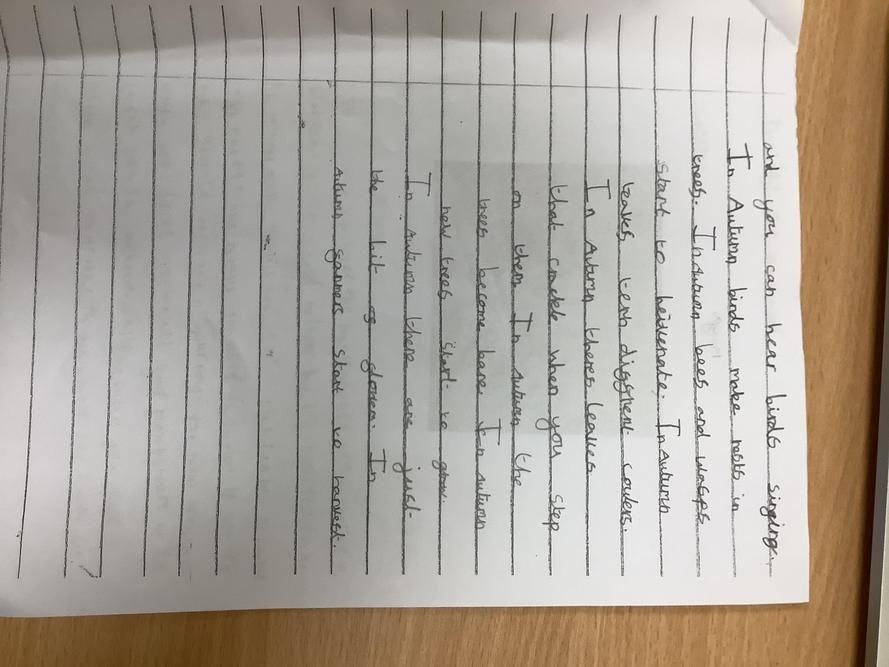 and you can hear birds singing.
In Autumn birds make nests in
trees. In Autumn bees and wasps
start to heidenate. In Autumn
leaves terh diffrent coulers.
In Autumn theres leaves
that crackle when you step
on them In Autumn the
trees become bare. In Autumn
new trees start to grow.
In Autumn there are just
the bit of In
Autumn farmers start to harvest.